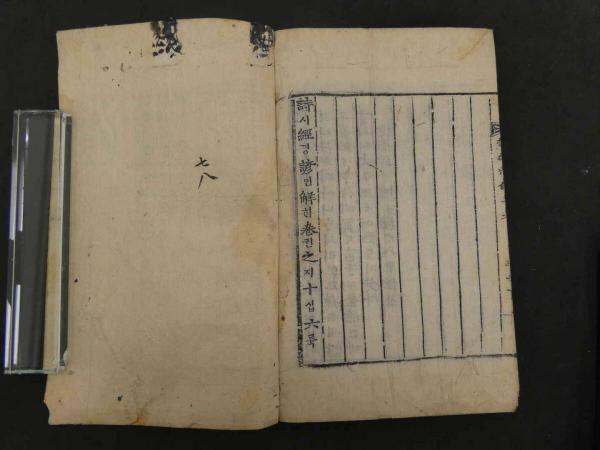 詩시經경諺언解ᄒᆡ卷권之지十십六륙
七八